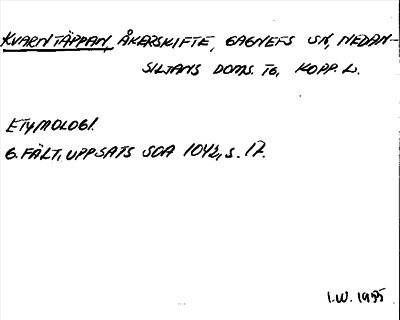 KVARNTÄPPAN, ÅKERSKIFTE, GAGNEFS SN, NEDAN-
SILJANS DOMS. TG, KOPP. L.
ETYMOLOGI.
G. FÄLT, UPPSATS SOA 1042, S. 17.
I.W. 1955